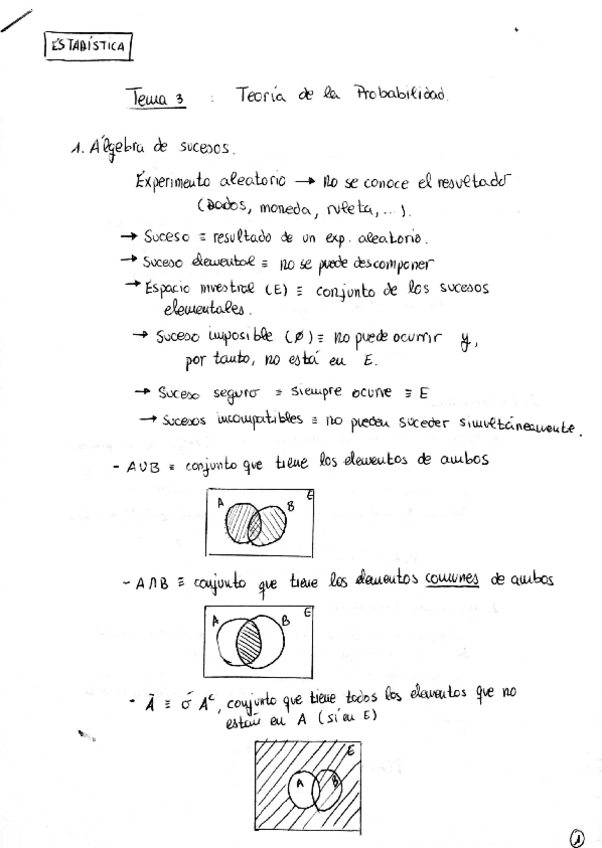 ESTADÍSTICA
Tema 3 : Teoría de la Probabilidad.
1. Álgebra de sucesos.
Experimento aleatorio → no se conoce el resultado
(Dados, moneda, ruleta, ...).
→ Suceso ≡ resultado de un exp. aleatorio.
→ Suceso elemental ≡ no se puede descomponer
→ Espacio muestral (E) ≡ conjunto de los sucesos
elementales.
→ Suceso imposible (∅) ≡ no puede ocurrir y,
por tanto, no está en E.
→ Suceso seguro ≡ siempre ocurre ≡ E
→ Sucesos incompatibles ≡ no pueden suceder simultáneamente.
- A∪B ≡ conjunto que tiene los elementos de ambos
A B E
- A∩B ≡ conjunto que tiene los elementos comunes de ambos
A B E
- Ā ≡ ó Aᶜ, conjunto que tiene todos los elementos que no
están en A (sí en E)
A B E
1